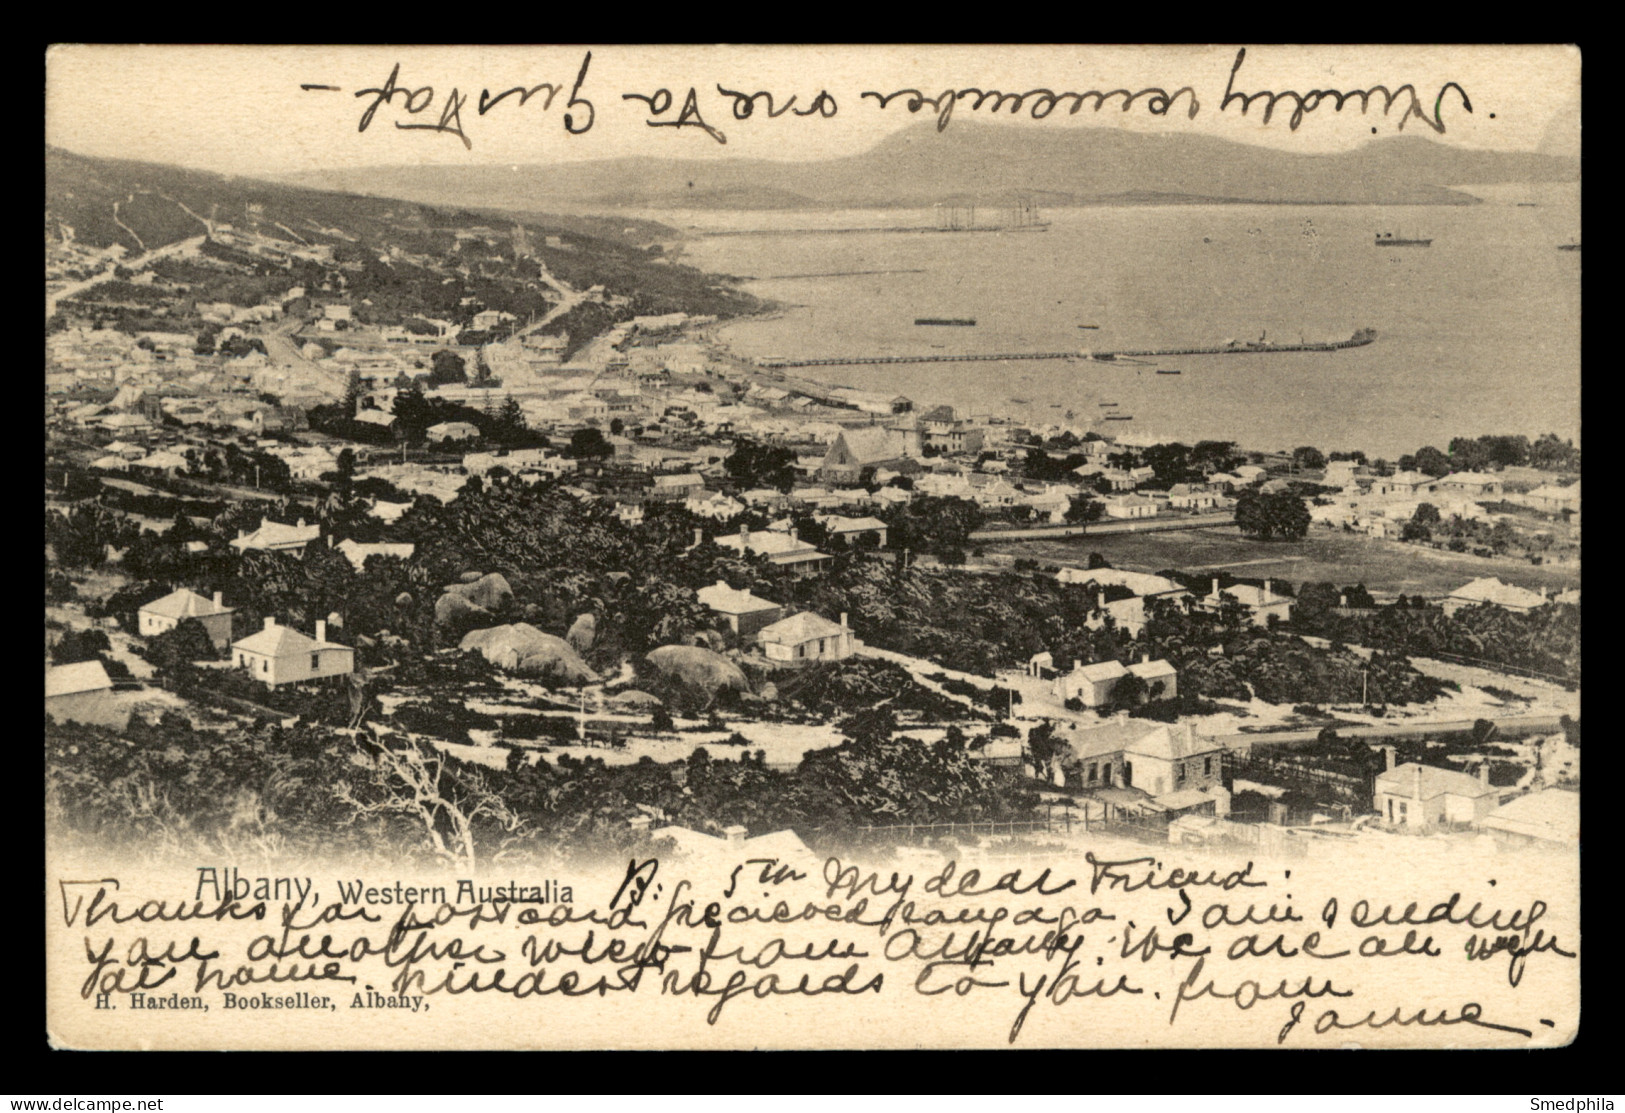 Kindly remember me to Gustaf -
Albany, Western Australia
5th My dear Friend:
Thanks for postcard received long ago. I am sending
you another view from Albany. We are all well
at home. Kindest regards to you. from
H. Harden, Bookseller, Albany,
Smedphila